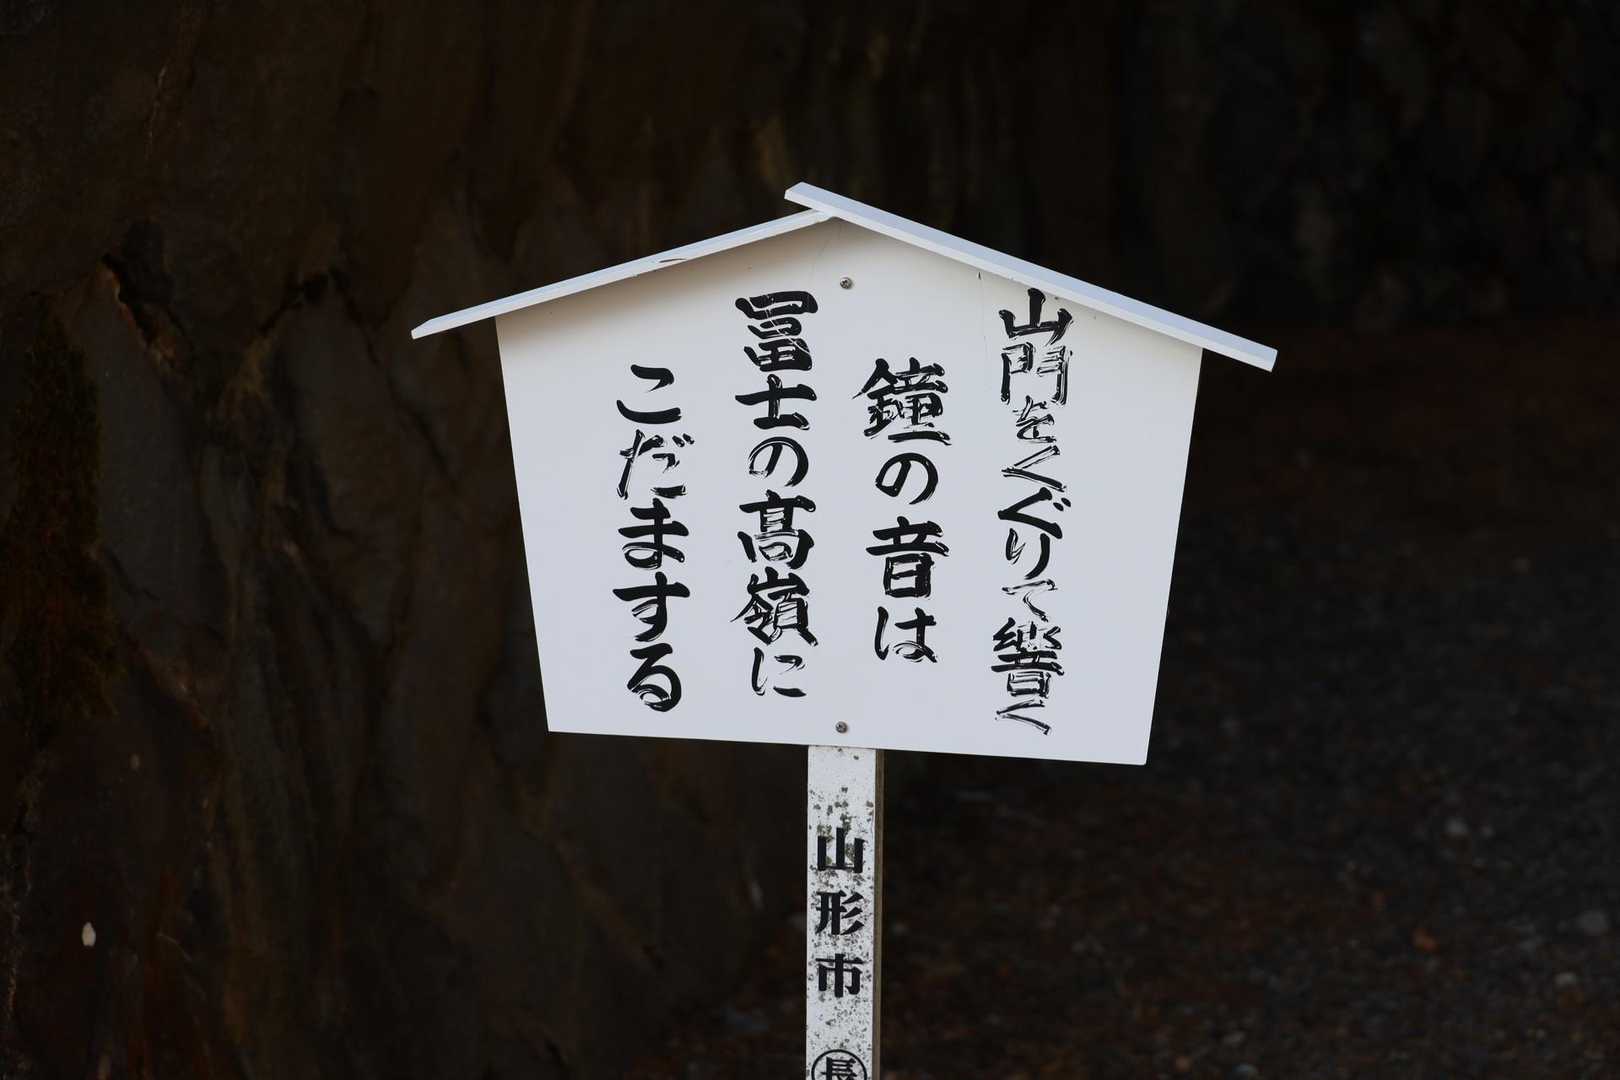 山門をくぐりて響く
鐘の音は
冨士の髙嶺に
こだまする
山形市
長